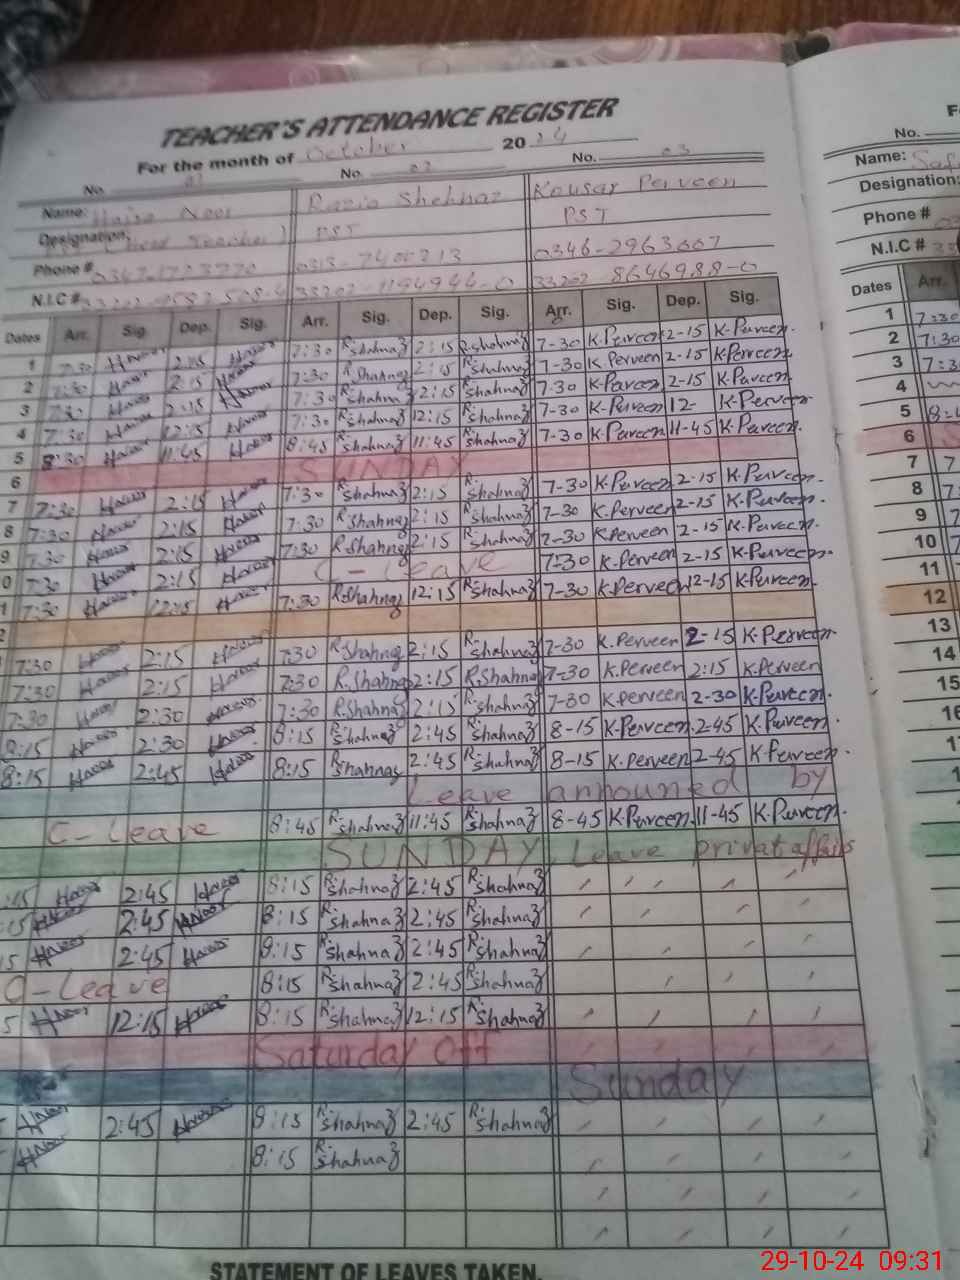 TEACHER'S ATTENDANCE REGISTER
For the month of October 2024
No. 01 No. 02 No. 03
Name: Noor Razia Shehnaz Kousar Perveen
Designation: (Head Teacher) PST PST
Phone # 0346-2963667
N.I.C # 33202-8646988-0
Dates Arr. Sig. Dep. Sig. Arr. Sig. Dep. Sig. Arr. Sig. Dep. Sig.
1 7:30 HNoor 2:15 HNoor 7:30 R.Shahnaz 2:15 R.Shahnaz 7-30 K.Perveen 2-15 K-Perveen.
2 7:30 HNoor 2:15 HNoor 7:30 R.Shahnaz 2:15 R.Shahnaz 7-30 K Perveen 2-15 K-Perveen.
3 7:30 HNoor 2:15 HNoor 7:30 R.Shahnaz 12:15 R.Shahnaz 7-30 K-Perveen 2-15 K-Perveen.
4 7:30 HNoor 12:15 HNoor 7:30 R.Shahnaz 12:15 R.Shahnaz 7-30 K-Perveen 12- K-Perveen
5 8:30 HNoor 11:45 HNoor 8:45 R.Shahnaz 11:45 R.Shahnaz 7-30 K.Perveen 11-45 K.Perveen.
6 SUNDAY
7 7:30 HNoor 2:15 HNoor 7:30 R.Shahnaz 2:15 R.Shahnaz 7-30 K-Perveen 2-15 K-Perveen.
8 7:30 HNoor 2:15 HNoor 7:30 R.Shahnaz 2:15 R.Shahnaz 7-30 K.Perveen 2-15 K-Perveen.
9 7:30 HNoor 2:15 HNoor 7:30 R.Shahnaz 2:15 R.Shahnaz 7-30 K.Perveen 2-15 K-Perveen.
0 7:30 HNoor 2:15 HNoor C-Leave 7:30 K.Perveen 2-15 K-Perveen.
1 7:30 HNoor 12:15 HNoor 7:30 R.Shahnaz 12:15 R.Shahnaz 7-30 K-Perveen 12-15 K-Perveen.
2
7:30 HNoor 2:15 HNoor 7:30 R.Shahnaz 2:15 R.Shahnaz 7-30 K.Perveen 2-15 K-Perveen.
7:30 HNoor 2:15 HNoor 7:30 R.Shahnaz 2:15 R.Shahnaz 7-30 K.Perveen 2:15 K.Perveen
7:30 HNoor 2:30 HNoor 7:30 R.Shahnaz 2:15 R.Shahnaz 7-30 K.Perveen 2-30 K.Perveen.
8:15 HNoor 2:30 HNoor 8:15 R.Shahnaz 2:45 R.Shahnaz 8-15 K.Perveen. 2-45 K.Perveen.
8:15 HNoor 2:45 HNoor 8:15 R.Shahnaz 2:45 R.Shahnaz 8-15 K.Perveen 2-45 K Perveen.
Leave announed by
C-Leave 8:45 R.Shahnaz 11:45 R.Shahnaz 8-45 K.Perveen. 11-45 K.Perveen.
SUNDAY Leave privat affairs
:15 HNoor 2:45 HNoor 8:15 R.Shahnaz 2:45 R.Shahnaz
:15 HNoor 2:45 HNoor 8:15 R.Shahnaz 2:45 R.Shahnaz
5 HNoor 2:45 HNoor 8:15 R.Shahnaz 2:45 R.Shahnaz
C-Leave 8:15 R.Shahnaz 2:45 R.Shahnaz
5 HNoor 12:15 HNoor 8:15 R.Shahnaz 12:15 R.Shahnaz
Saturday Off
Sunday
HNoor 2:45 HNoor 8:15 R.Shahnaz 2:45 R.Shahnaz
HNoor 8:15 R.Shahnaz
STATEMENT OF LEAVES TAKEN.
No.
Name: Saf
Designation:
Phone #
N.I.C #
Dates Arr.
1 7:30
2 7:30
3 7:3
4
5 8:4
6 S
7 7
8 7
9
10
11
12
13
14
15
16
17
29-10-24 09:31